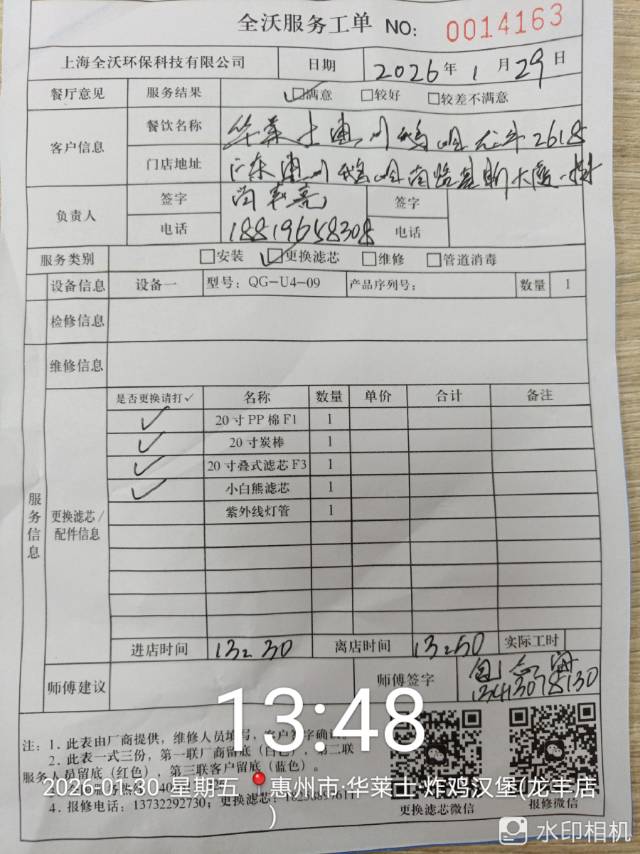 全沃服务工单 NO: 0014163
上海全沃环保科技有限公司 日期 2026年 1月 29日
餐厅意见 服务结果 ✓□满意 □较好 □较差不满意
客户信息 餐饮名称 华莱士惠州鹅岭龙丰2618
门店地址 广东惠州鹅岭南路
负责人 签字 签字
电话 18819658308 电话
服务类别 □安装 ✓□更换滤芯 □维修 □管道消毒
设备信息 设备一 型号: QG-U4-09 产品序列号: 数量 1
检修信息
维修信息
服务信息
更换滤芯/配件信息
是否更换请打✓ 名称 数量 单价 合计 备注
✓ 20寸PP棉F1 1
✓ 20寸炭棒 1
✓ 20寸叠式滤芯F3 1
✓ 小白熊滤芯 1
紫外线灯管 1
进店时间 13:30 离店时间 13:50 实际工时
师傅建议 师傅签字
13413078130
13:48
注: 1. 此表由厂商提供, 维修人员填写, 客户签字确认
2. 此表一式三份, 第一联厂商留底(白色), 第二联
服务人员留底(红色), 第三联客户留底(蓝色)。
2026-01-30 星期五 惠州市·华莱士·炸鸡汉堡(龙丰店
)
4. 报修电话: 13732292730; 更换滤芯:
更换滤芯微信 报修微信
水印相机